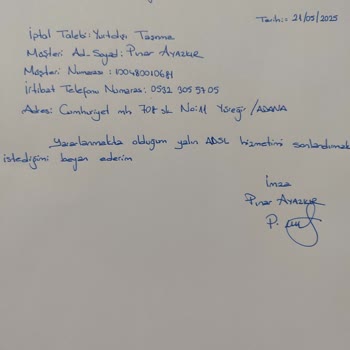 Tarih:: 21/05/2025
İptal Talebi: Yurtdışı Taşınma
Müşteri Ad-Soyad: Pınar AYAZKUR
Müşteri Numarası: 100480010681
İrtibat Telefonu Numarası: 0532 305 5705
Adres: Cumhuriyet mh 708 sk No:11 Yüreğir /ADANA
Yararlanmakta olduğum yalın ADSL hizmetini sonlandırmak
istediğimi beyan ederim
İmza
Pınar AYAZKUR
P.